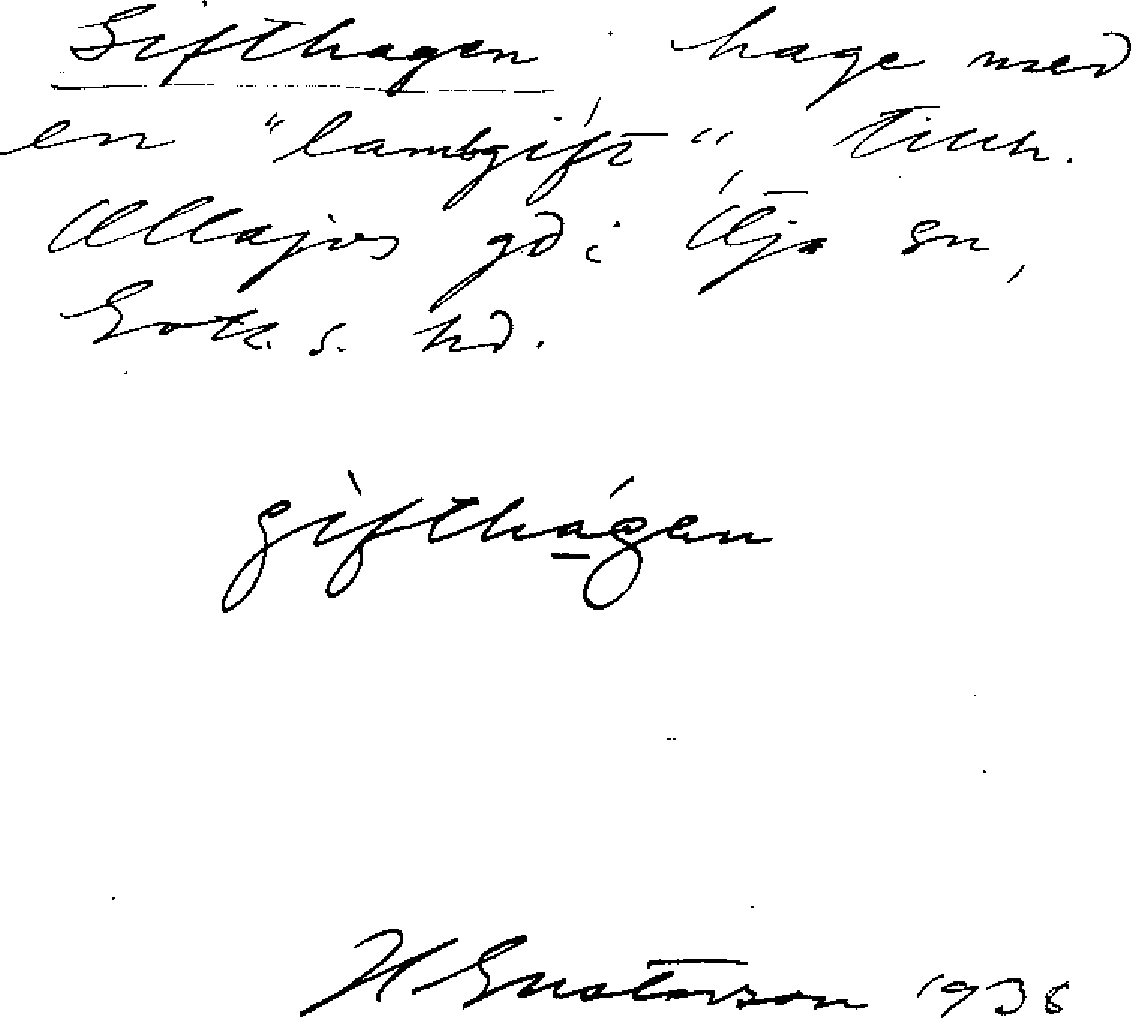 Gifthagen, hage med
en "lambgift", tillh.
Ollajvs gd i Öja sn,
Gotl. s. hd.
gìfthágen
H Gustavson 1938